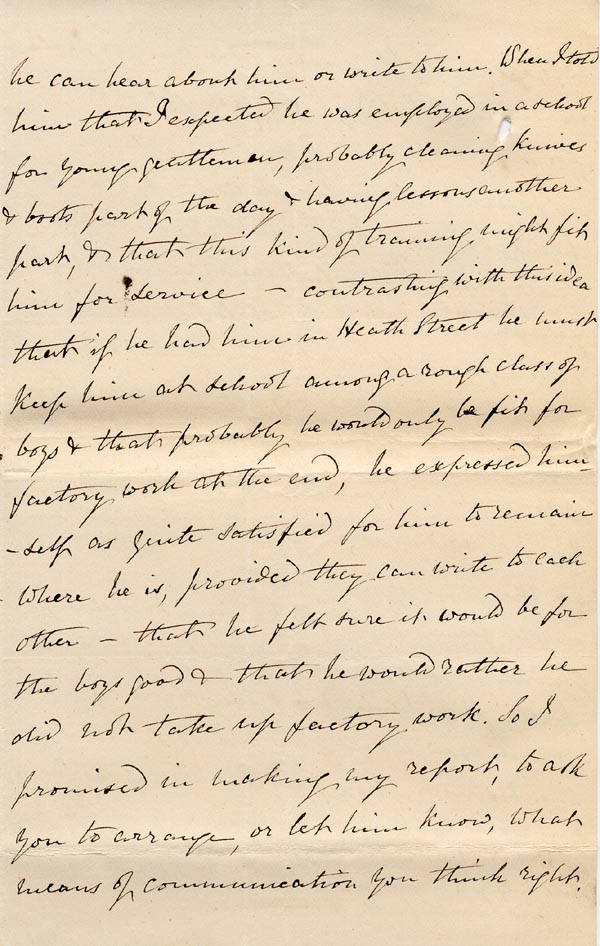 he can hear about him or write to him. When I told
him that I expected he was employed in a school
for young gentlemen, probably cleaning knives
& boots part of the day & having lessons another
part, & that this kind of training might fit
him for service – contrasting with this idea
that if he had him in Heath Street he must
keep him at school among a rough class of
boys & that probably he would only be fit for
factory work at the end, he expressed him-
-self as quite satisfied for him to remain
where he is, provided they can write to each
other – that he felt sure it would be for
the boys good & that he would rather he
did not take up factory work. So I
promised in making my report, to ask
you to arrange, or let him know, what
means of communication you think right.